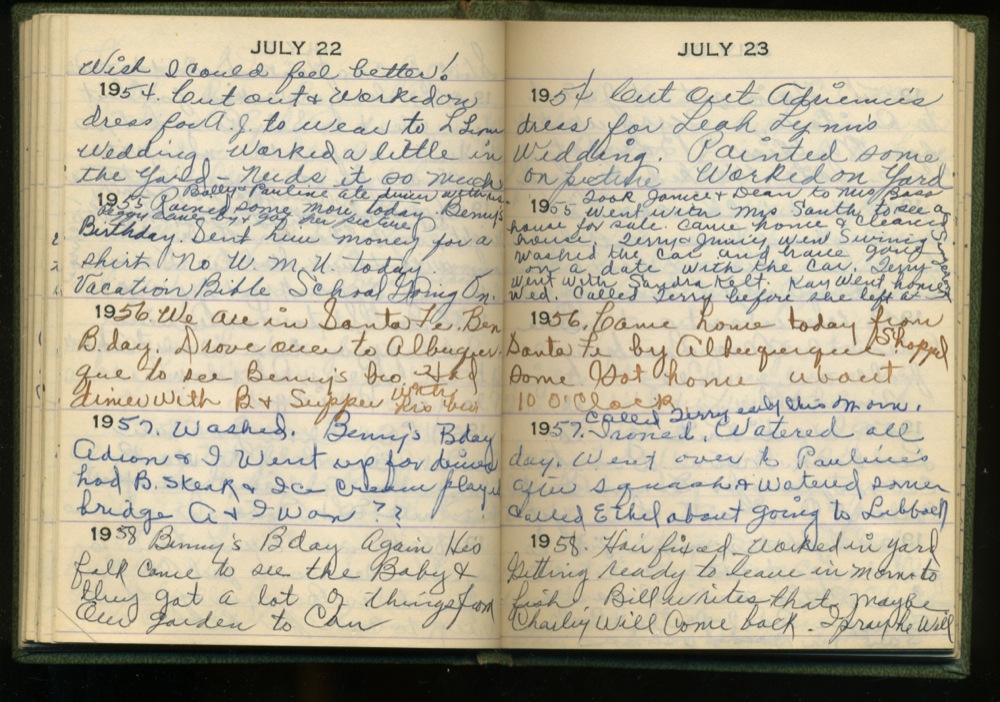 JULY 22
Wish I could feel better!
1954. Cut out & worked on
dress for A. J. to wear to L Lynn
Wedding. Worked a little in
the Yard - Needs it so much
Bally & Pauline ate dinner with us.
1955 Rained some more today. Benny's
Peggy came by & got her picture
Birthday. Sent him money for a
shirt No W. M. U. today
Vacation Bible School Going On.
1956. We are in Santa Fe. Ben
B.day. Drove over to Albuquer-
que to see Benny's bro. Had
dinner with B & Supper with his bro
1957. Washed. Benny's Bday
Adion & I went up for dinner
had B. Steak & Ice cream played
bridge A & I won ??
1958 Benny's Bday Again His
folk came to see the Baby &
they got a lot of things from
Our garden to Can
JULY 23
1954 Cut Out Adrienne's
dress for Leah Lynn's
Wedding. Painted some
on picture Worked on Yard
Took Janice & Dean to Mrs Bass
1955 Went with Mrs Santh to see a
house for sale. Came home & cleaned
house. Terry & went Swimming
washed the car and have gone
on a date with the car. Terry
went with Sandra Kelt. Kay went home
Wed. Called Terry before she left at
1956. Came home today from
Santa Fe by Albuquerque Shopped
some Got home about
10 O'Clock
Called Terry early this morn.
1957. Ironed. Watered all
day. Went over to Pauline's
after squash & Watered some
Called Ethel about going to Lubbock
1958. Hair fixed - worked in yard
Getting ready to leave in morn to
fish. Bill writes that maybe
Charley Will Come back. I pray he Will